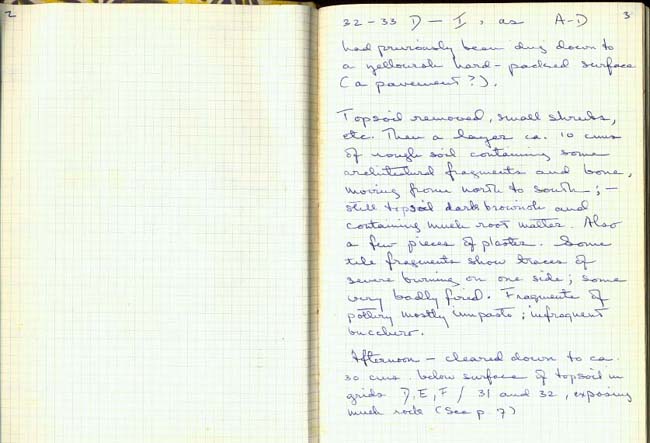 2
3
32-33 D-I, as A-D
had previously been dug down to
a yellowish hard-packed surface
(a pavement?).
Topsoil removed, small shrubs,
etc. Then a layer ca. 10 cms
of rough soil containing some
architectural fragments and bone,
moving from north to south; -
still topsoil dark brownish and
containing much root matter. Also
a few pieces of plaster. Some
tile fragments show traces of
severe burning on one side; some
very badly fired. Fragments of
pottery mostly impasto; infrequent
bucchero.
Afternoon - cleared down to ca.
30 cms. below surface of topsoil in
grids D,E,F / 31 and 32, exposing
much rock (See p. 7)